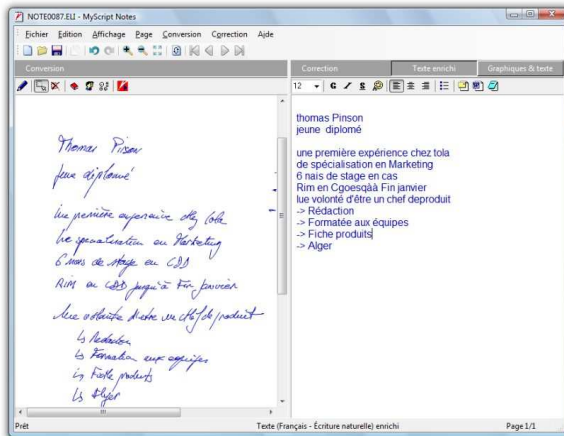 NOTE0087.ELI - MyScript Notes
Fichier Edition Affichage Page Conversion Correction Aide
Conversion
Thomas Pinson
jeune diplômé
Une première expérience chez Cola
Une spécialisation en Marketing
6 mois de stage en CDD
RIM en CDD jusqu'à Fin Janvier
Une volonté d'être un chef de produit
↳ Rédaction
↳ Formation aux équipes
↳ Fiche produits
↳ Alger
Correction Texte enrichi Graphiques & texte
12 G I S
thomas Pinson
jeune diplomé
une première expérience chez tola
de spécialisation en Marketing
6 nais de stage en cas
Rim en Cgoesqàà Fin janvier
lue volonté d'être un chef deproduit
-> Rédaction
-> Formatée aux équipes
-> Fiche produits
-> Alger
Prêt Texte (Français - Écriture naturelle) enrichi Page 1/1